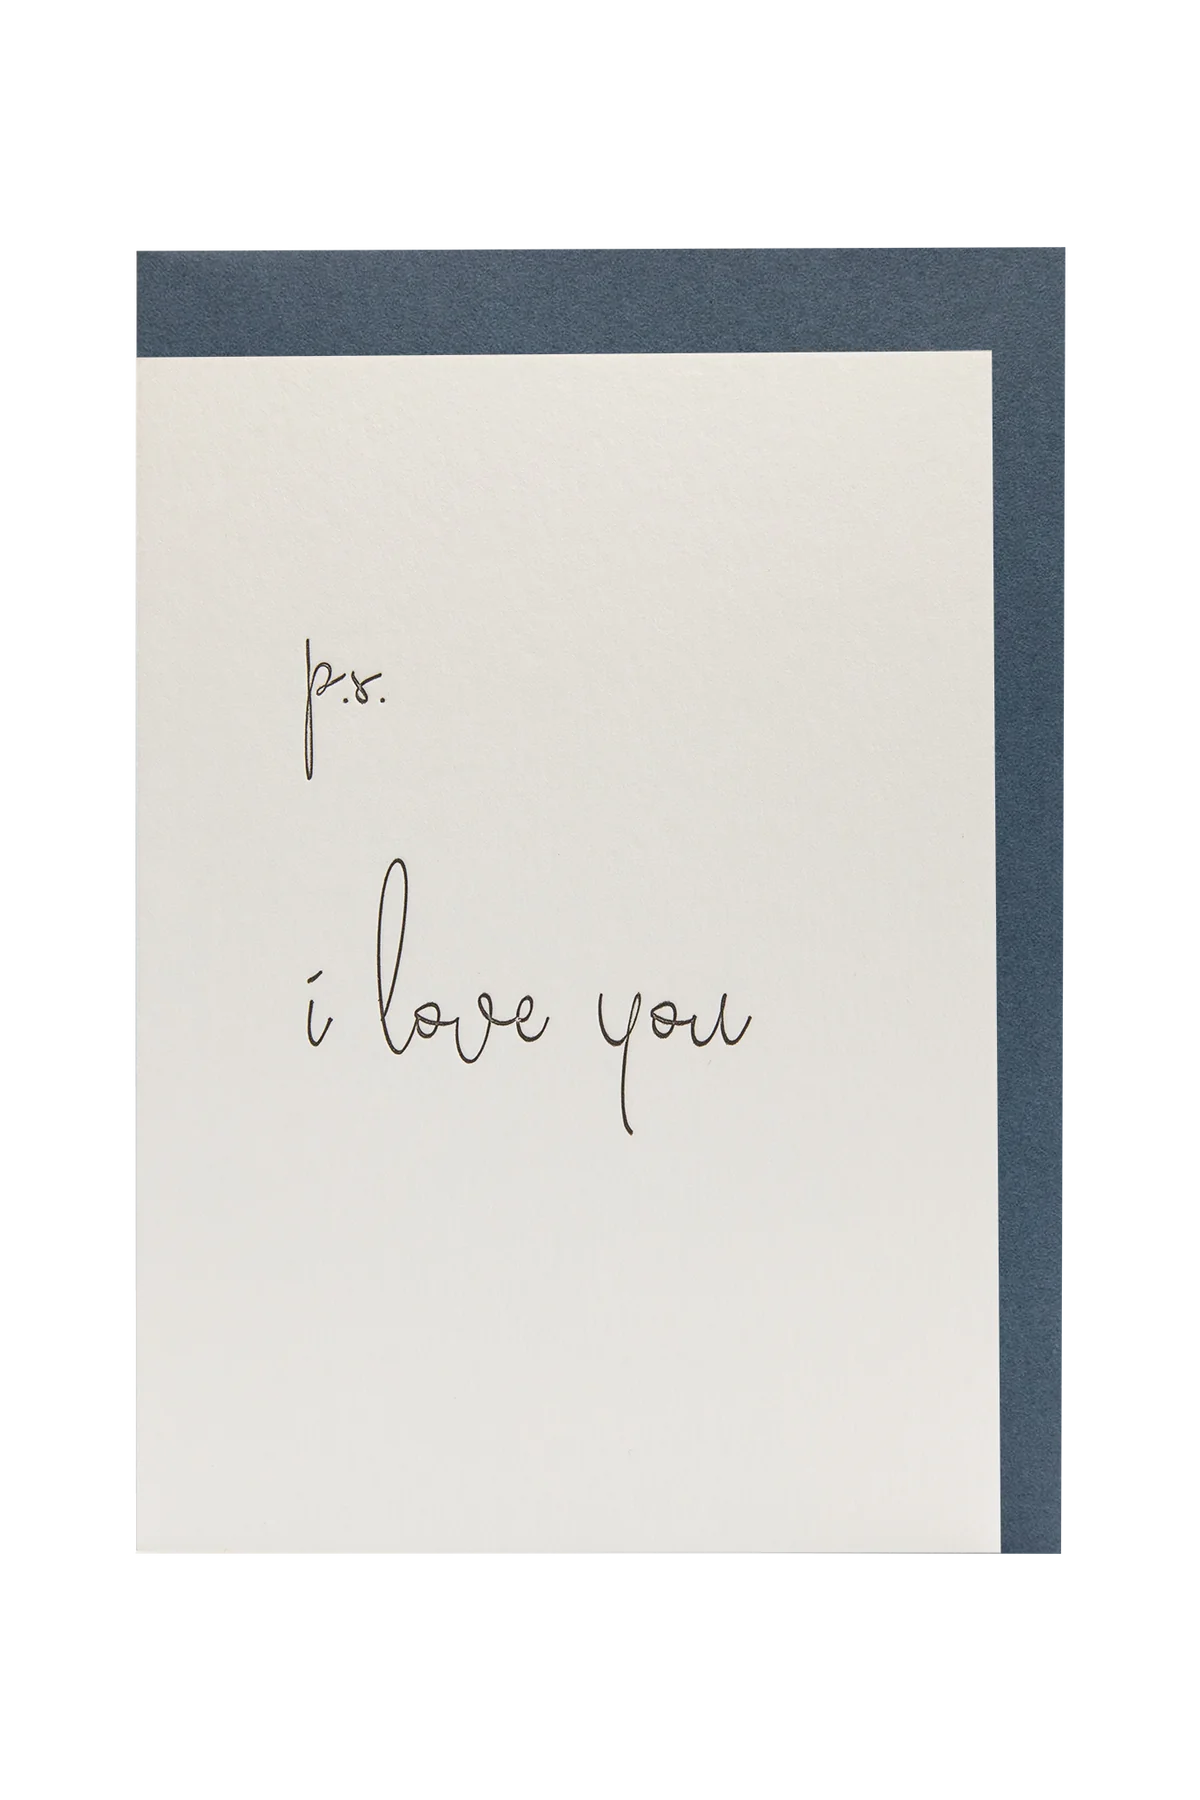 p.s.
i love you